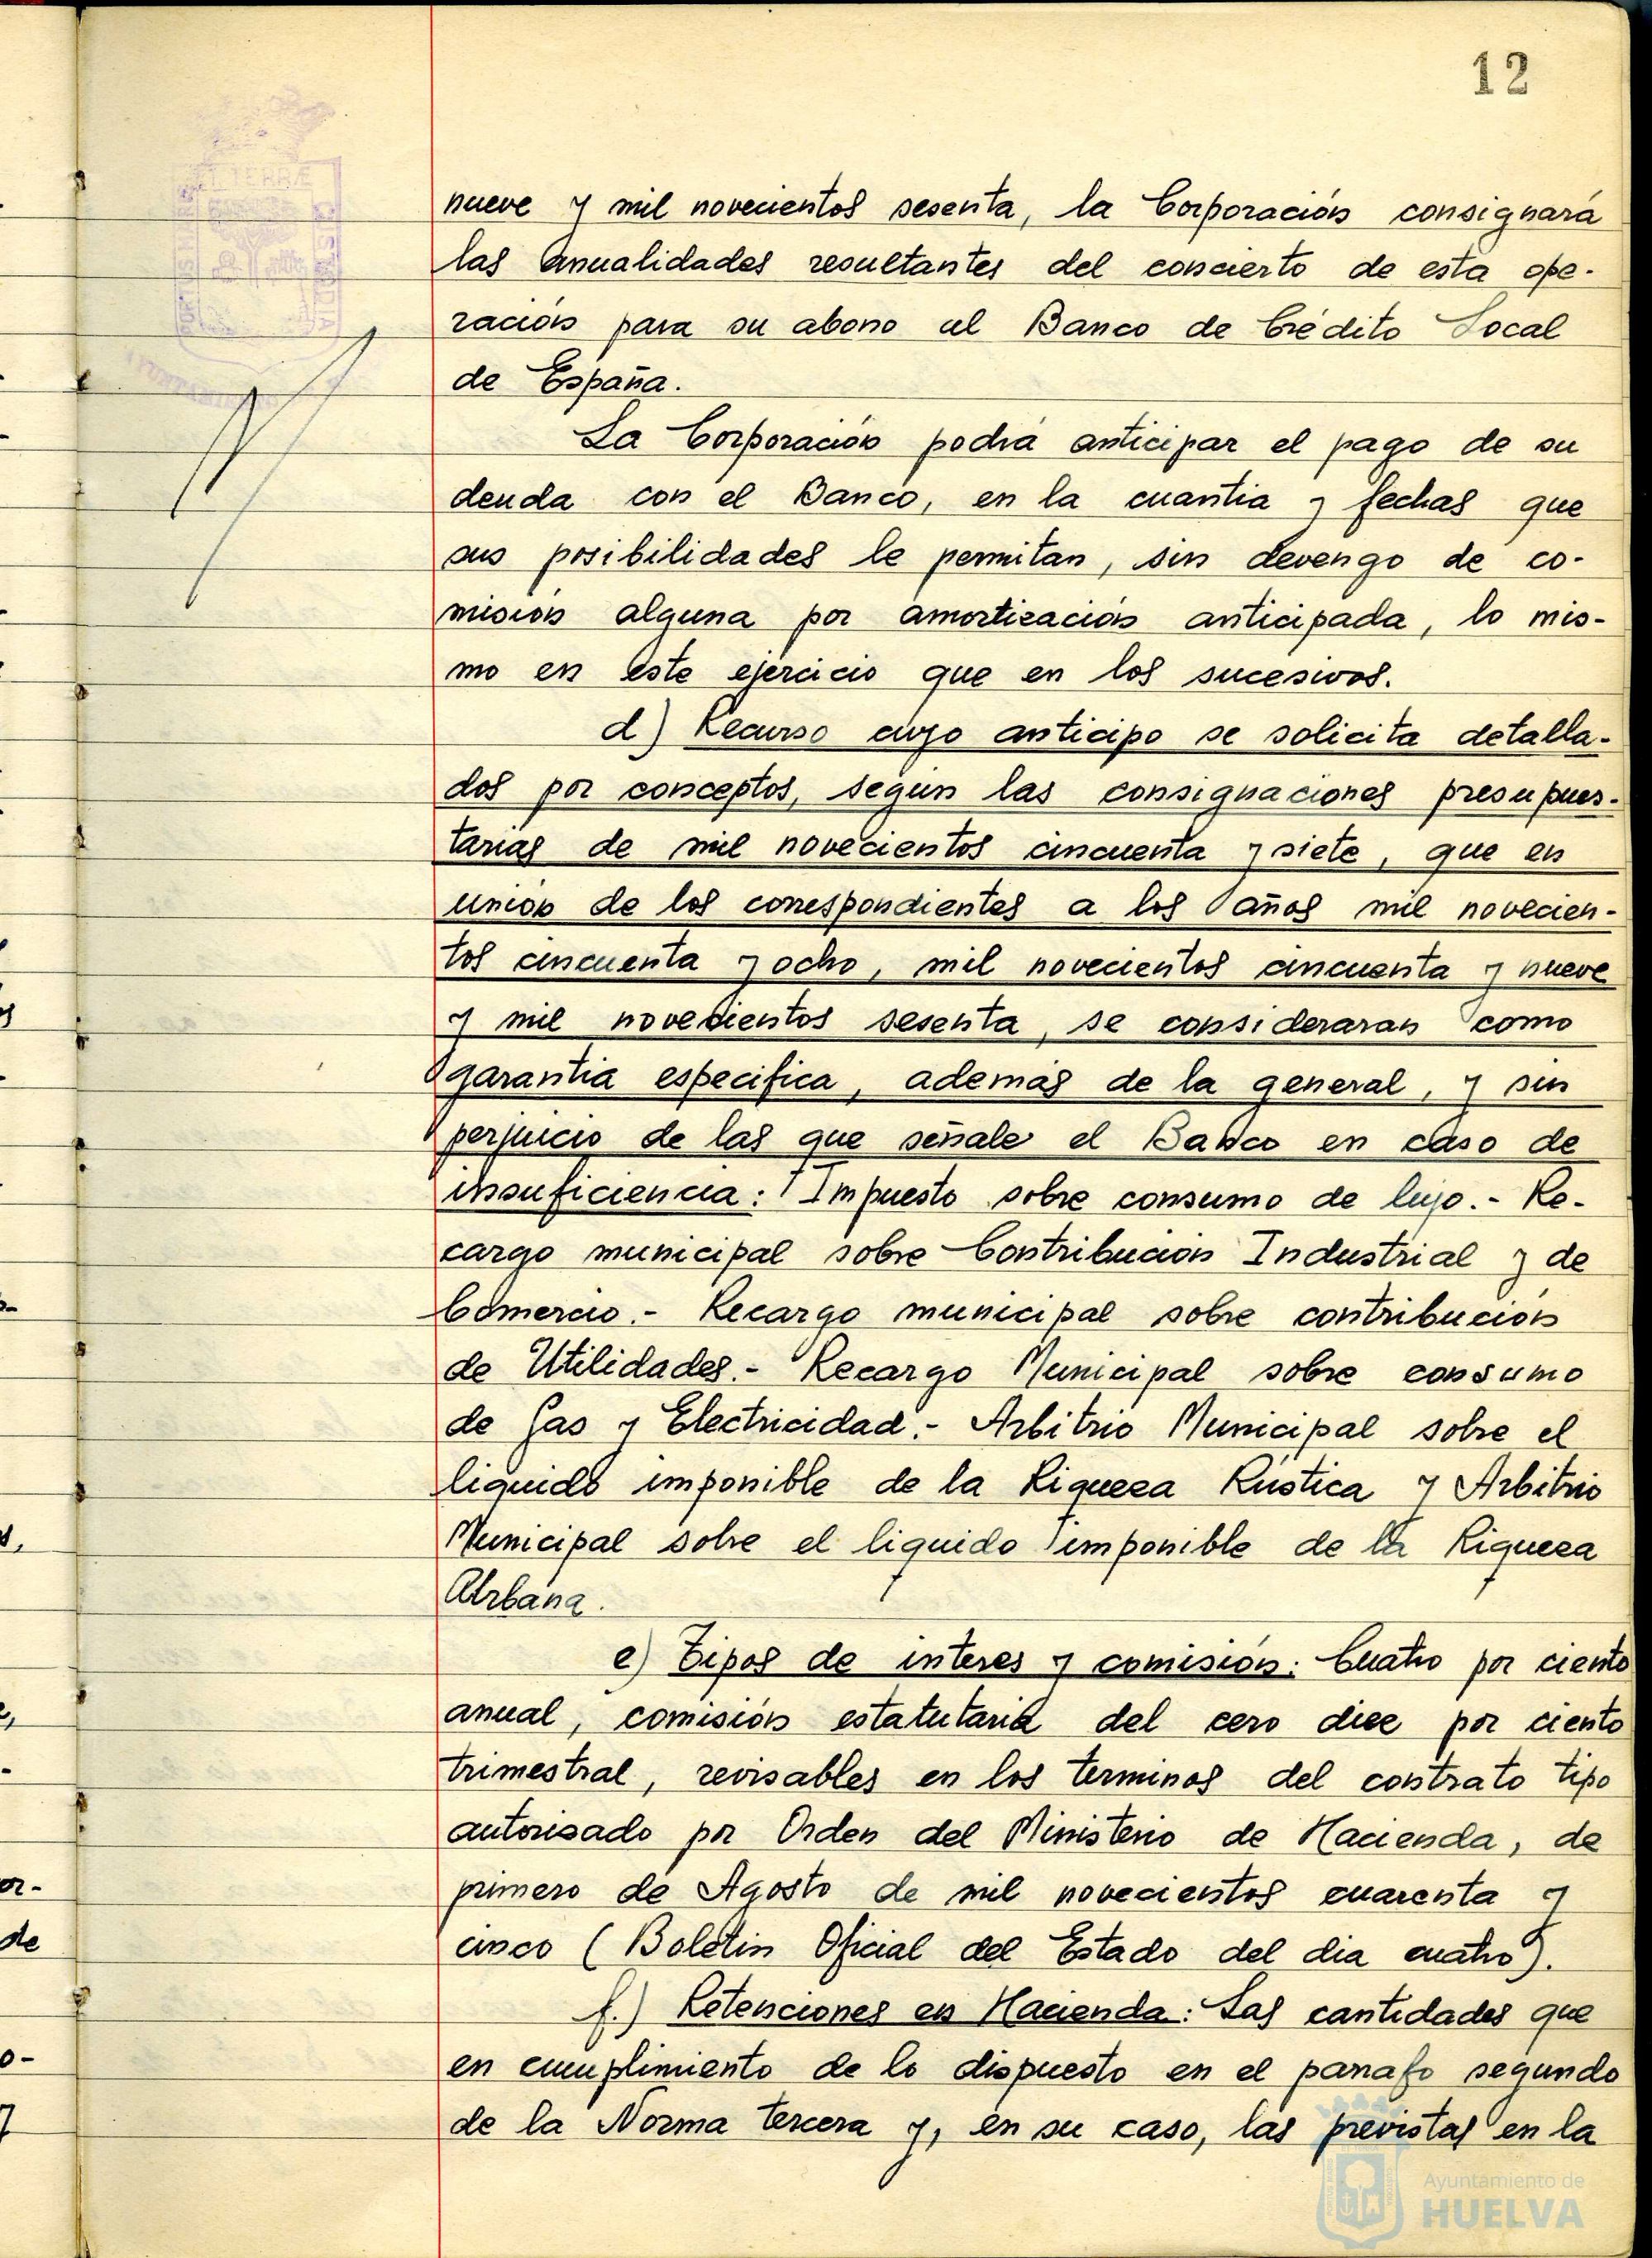 12
ET TERRÆ
CUSTODIA
PORTUS MARIS
AYUNTAMIENTO
nueve y mil novecientos sesenta, la Corporación consignará
las anualidades resultantes del concierto de esta ope-
ración para su abono al Banco de Crédito Local
de España.
La Corporación podrá anticipar el pago de su
deuda con el Banco, en la cuantia y fechas que
sus posibilidades le permitan, sin devengo de co-
misión alguna por amortización anticipada, lo mis-
mo en este ejercicio que en los sucesivos.
d) Recurso cuyo anticipo se solicita detalla-
dos por conceptos, según las consignaciones presupues-
tarias de mil novecientos cincuenta y siete, que en
unión de los correspondientes a los años mil novecien-
tos cincuenta y ocho, mil novecientos cincuenta y nueve
y mil novecientos sesenta, se consideraran como
garantia especifica, además de la general, y sin
perjuicio de las que señale el Banco en caso de
insuficiencia: Impuesto sobre consumo de lujo.- Re-
cargo municipal sobre Contribución Industrial y de
Comercio.- Recargo municipal sobre contribución
de Utilidades.- Recargo Municipal sobre consumo
de Gas y Electricidad.- Arbitrio Municipal sobre el
liquido imponible de la Riqueza Rústica y Arbitrio
Municipal sobre el liquido imponible de la Riqueza
Urbana.
e) Tipos de interes y comisión: Cuatro por ciento
anual, comisión estatutaria del cero diez por ciento
trimestral, revisables en los terminos del contrato tipo
autorizado por Orden del Ministerio de Hacienda, de
primero de Agosto de mil novecientos cuarenta y
cinco (Boletin Oficial del Estado del dia cuatro).
f.) Retenciones en Hacienda: Las cantidades que
en cumplimiento de lo dispuesto en el parrafo segundo
de la Norma tercera y, en su caso, las previstas en la
Ayuntamiento de
HUELVA